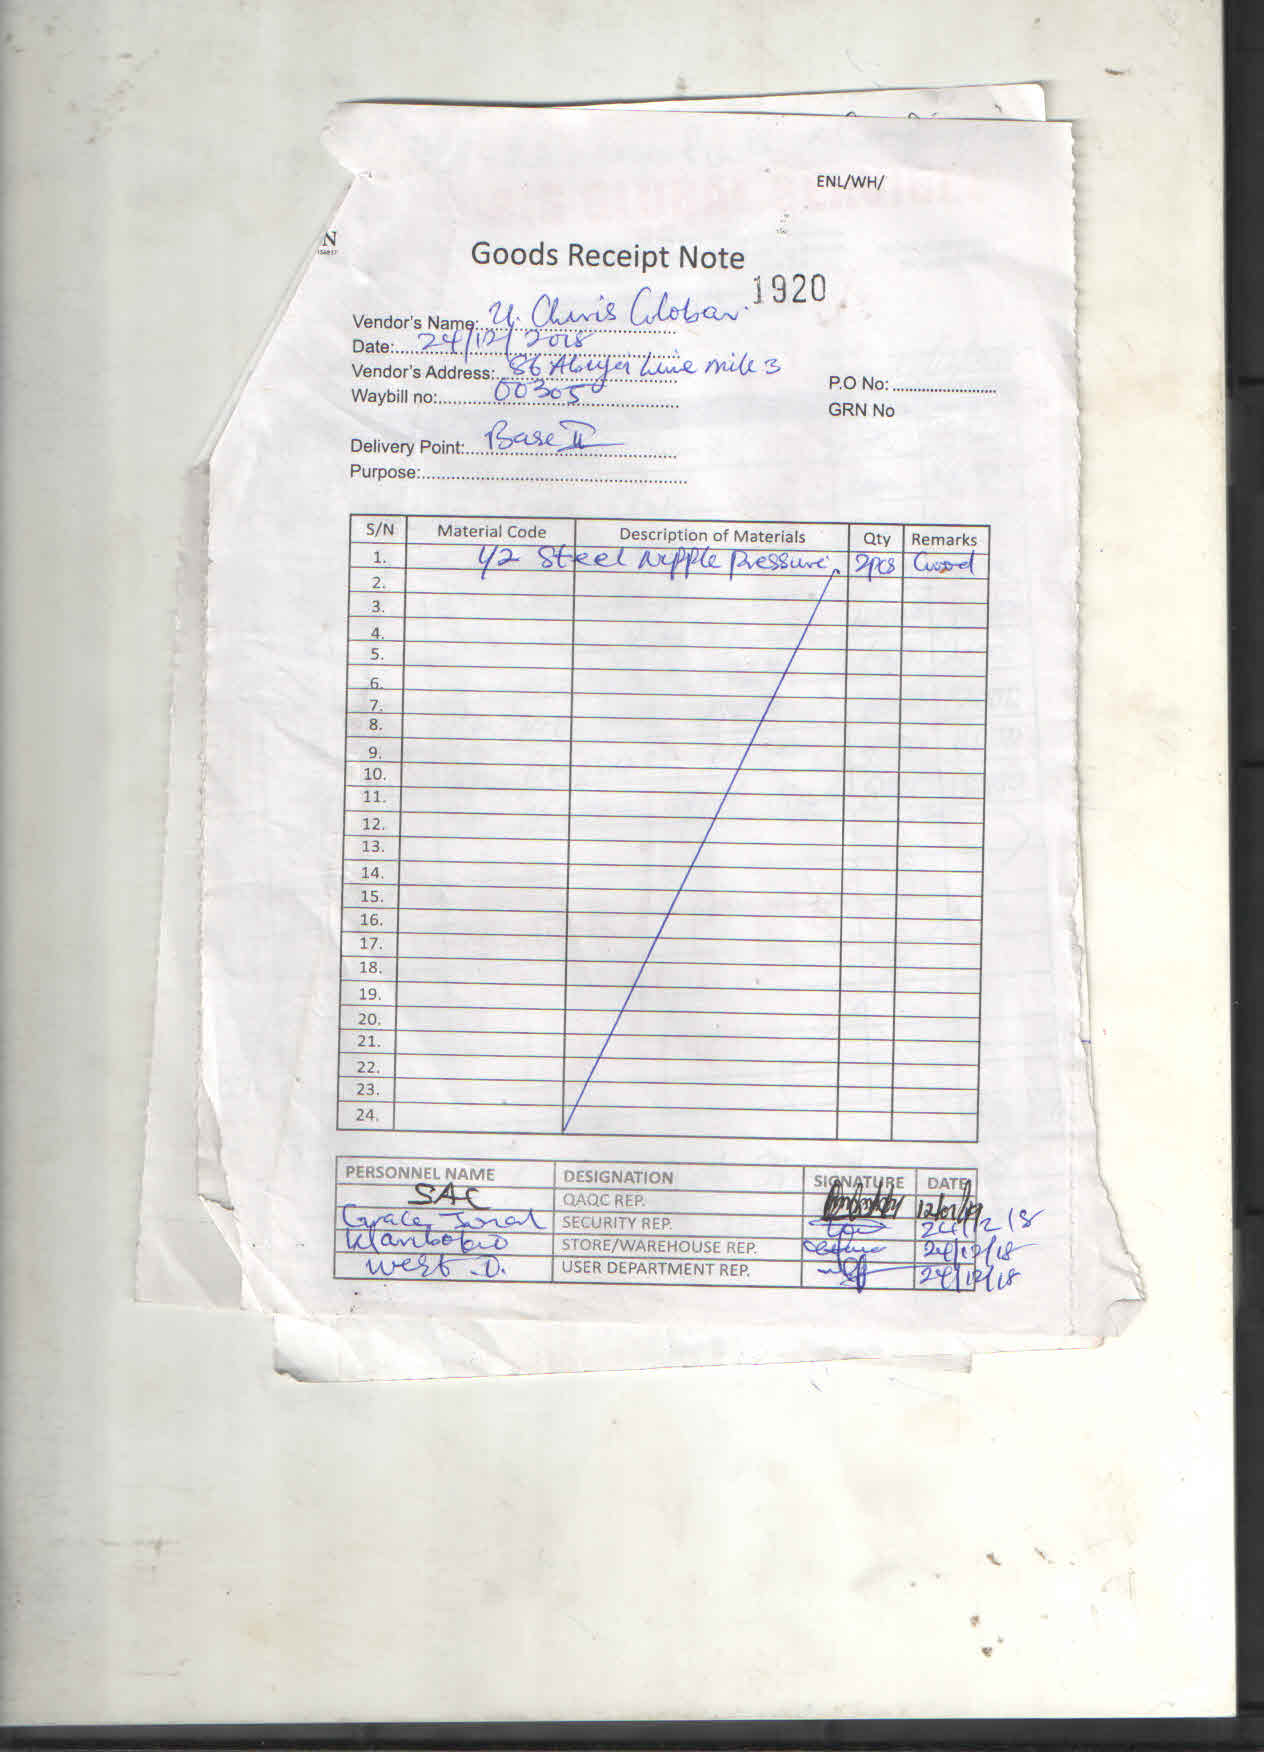 ENL/WH/
N
Goods Receipt Note
1920
Vendor's Name: U. Chris Global
Date: 24/12/2018
Vendor's Address: 86 Abuja Line Mile 3
P.O No:
Waybill no: 00305
GRN No
Delivery Point: Base II
Purpose:
S/N Material Code Description of Materials Qty Remarks
1. 1/2 Steel Nipple Pressure 2pcs Good
2.
3.
4.
5.
6.
7.
8.
9.
10.
11.
12.
13.
14.
15.
16.
17.
18.
19.
20.
21.
22.
23.
24.
PERSONNEL NAME DESIGNATION SIGNATURE DATE
SAC QAQC REP. 12/01/19
Grace SECURITY REP. 24/12/18
STORE/WAREHOUSE REP. 24/12/18
West .D. USER DEPARTMENT REP. 24/12/18